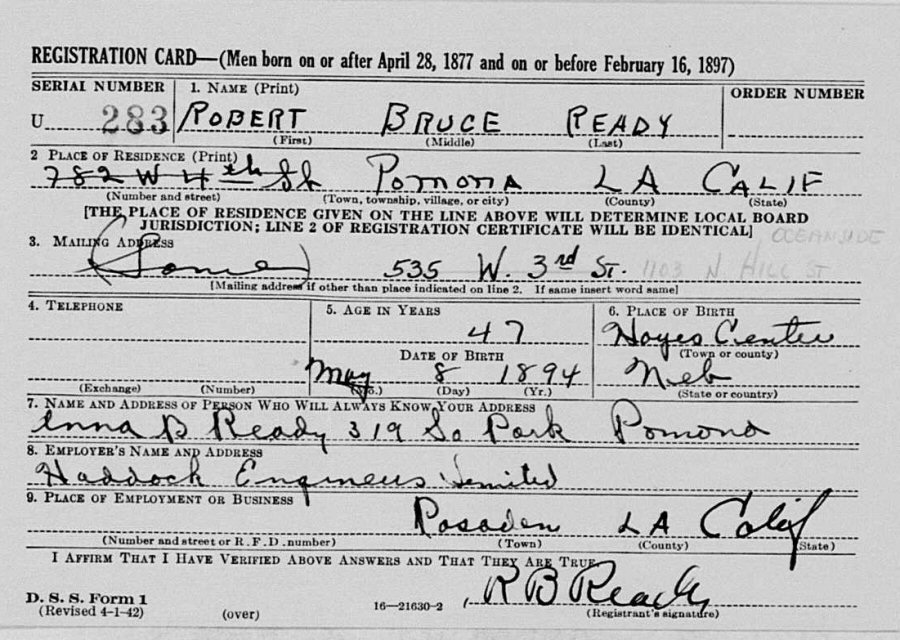 REGISTRATION CARD—(Men born on or after April 28, 1877 and on or before February 16, 1897)
SERIAL NUMBER 1. NAME (Print) ORDER NUMBER
U 283 ROBERT BRUCE READY
(First) (Middle) (Last)
2 PLACE OF RESIDENCE (Print)
782 W 4th St Pomona LA CALIF
(Number and street) (Town, township, village, or city) (County) (State)
[THE PLACE OF RESIDENCE GIVEN ON THE LINE ABOVE WILL DETERMINE LOCAL BOARD
JURISDICTION; LINE 2 OF REGISTRATION CERTIFICATE WILL BE IDENTICAL] OCEANSIDE
3. MAILING ADDRESS
(Same) 535 W. 3rd St. 1103 N HILL ST
[Mailing address if other than place indicated on line 2. If same insert word same]
4. TELEPHONE 5. AGE IN YEARS 6. PLACE OF BIRTH
47 Hayes Center
DATE OF BIRTH (Town or county)
May 8 1894 Neb
(Exchange) (Number) (Mo.) (Day) (Yr.) (State or country)
7. NAME AND ADDRESS OF PERSON WHO WILL ALWAYS KNOW YOUR ADDRESS
Anna B Ready 319 So Park Pomona
8. EMPLOYER'S NAME AND ADDRESS
Haddock Engineers Limited
9. PLACE OF EMPLOYMENT OR BUSINESS
Pasaden LA Calif
(Number and street or R.F.D. number) (Town) (County) (State)
I AFFIRM THAT I HAVE VERIFIED ABOVE ANSWERS AND THAT THEY ARE TRUE.
R B Ready
D. S. S. Form 1
(Revised 4-1-42) (over) 16—21630-2 (Registrant's signature)